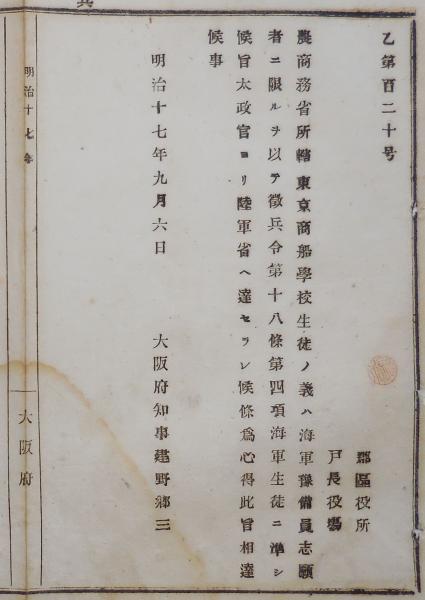 乙第百二十号
郡區役所
戸長役塲
農商務省所轄東京商船學校生徒ノ義ハ海軍豫備員志願
者ニ限ルヲ以テ徴兵令第十八條第四項海軍生徒ニ準シ
候旨太政官ヨリ陸軍省ヘ達セラレ候條爲心得此旨相達
候事
明治十七年九月六日　大阪府知事建野郷三
明治十七年
大阪府